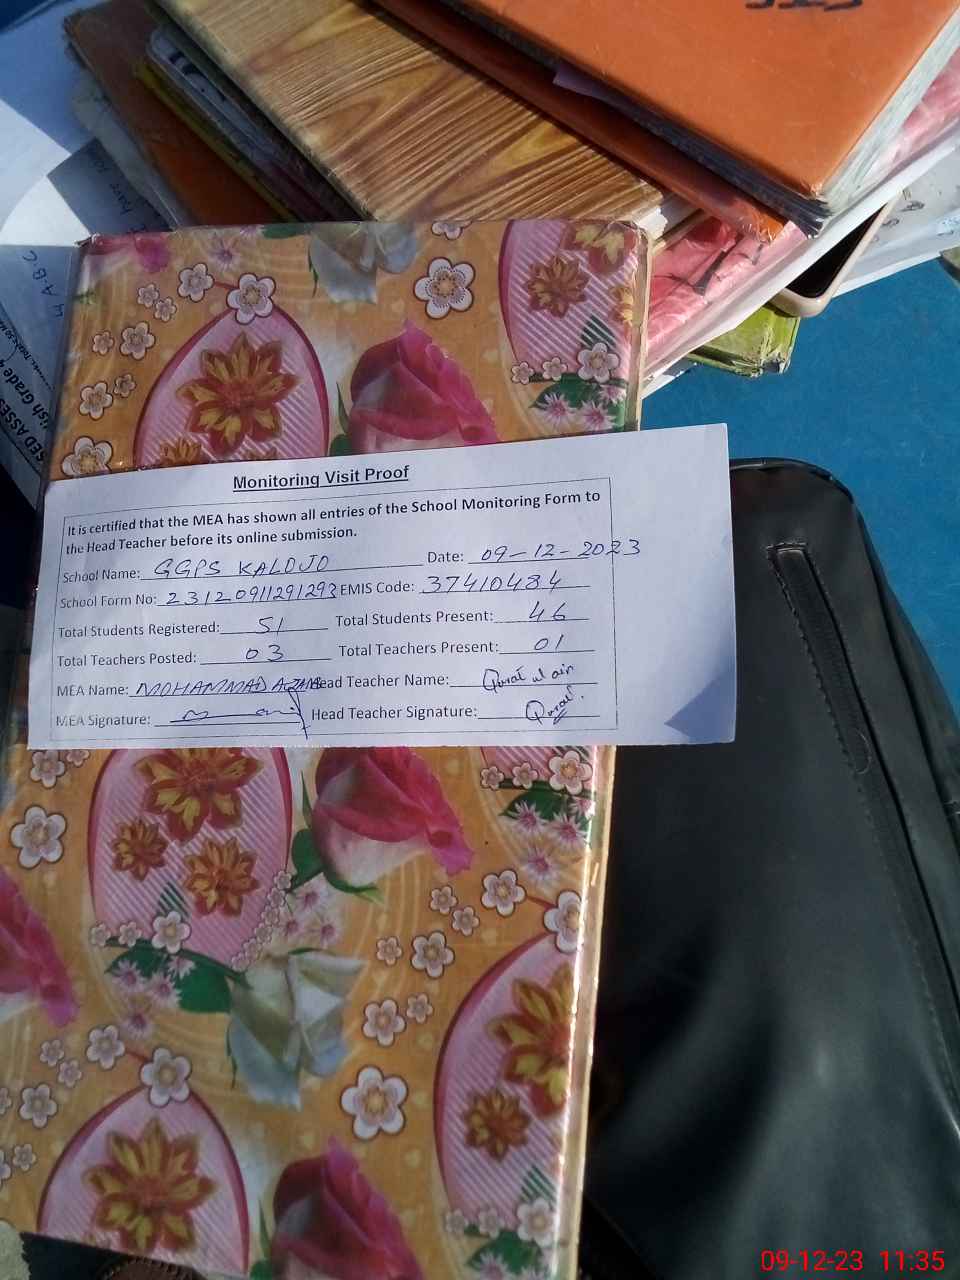 Monitoring Visit Proof
It is certified that the MEA has shown all entries of the School Monitoring Form to
the Head Teacher before its online submission.
School Name: GGPS KALOJO Date: 09-12-2023
School Form No: 23120911291293 EMIS Code: 37410484
Total Students Registered: 51 Total Students Present: 46
Total Teachers Posted: 03 Total Teachers Present: 01
MEA Name: MOHAMMAD Head Teacher Name: Qurat ul ain
MEA Signature: Head Teacher Signature: Qurat.
4 A-B-C
SED ASSES
lish Grade 4
have
09-12-23 11:35